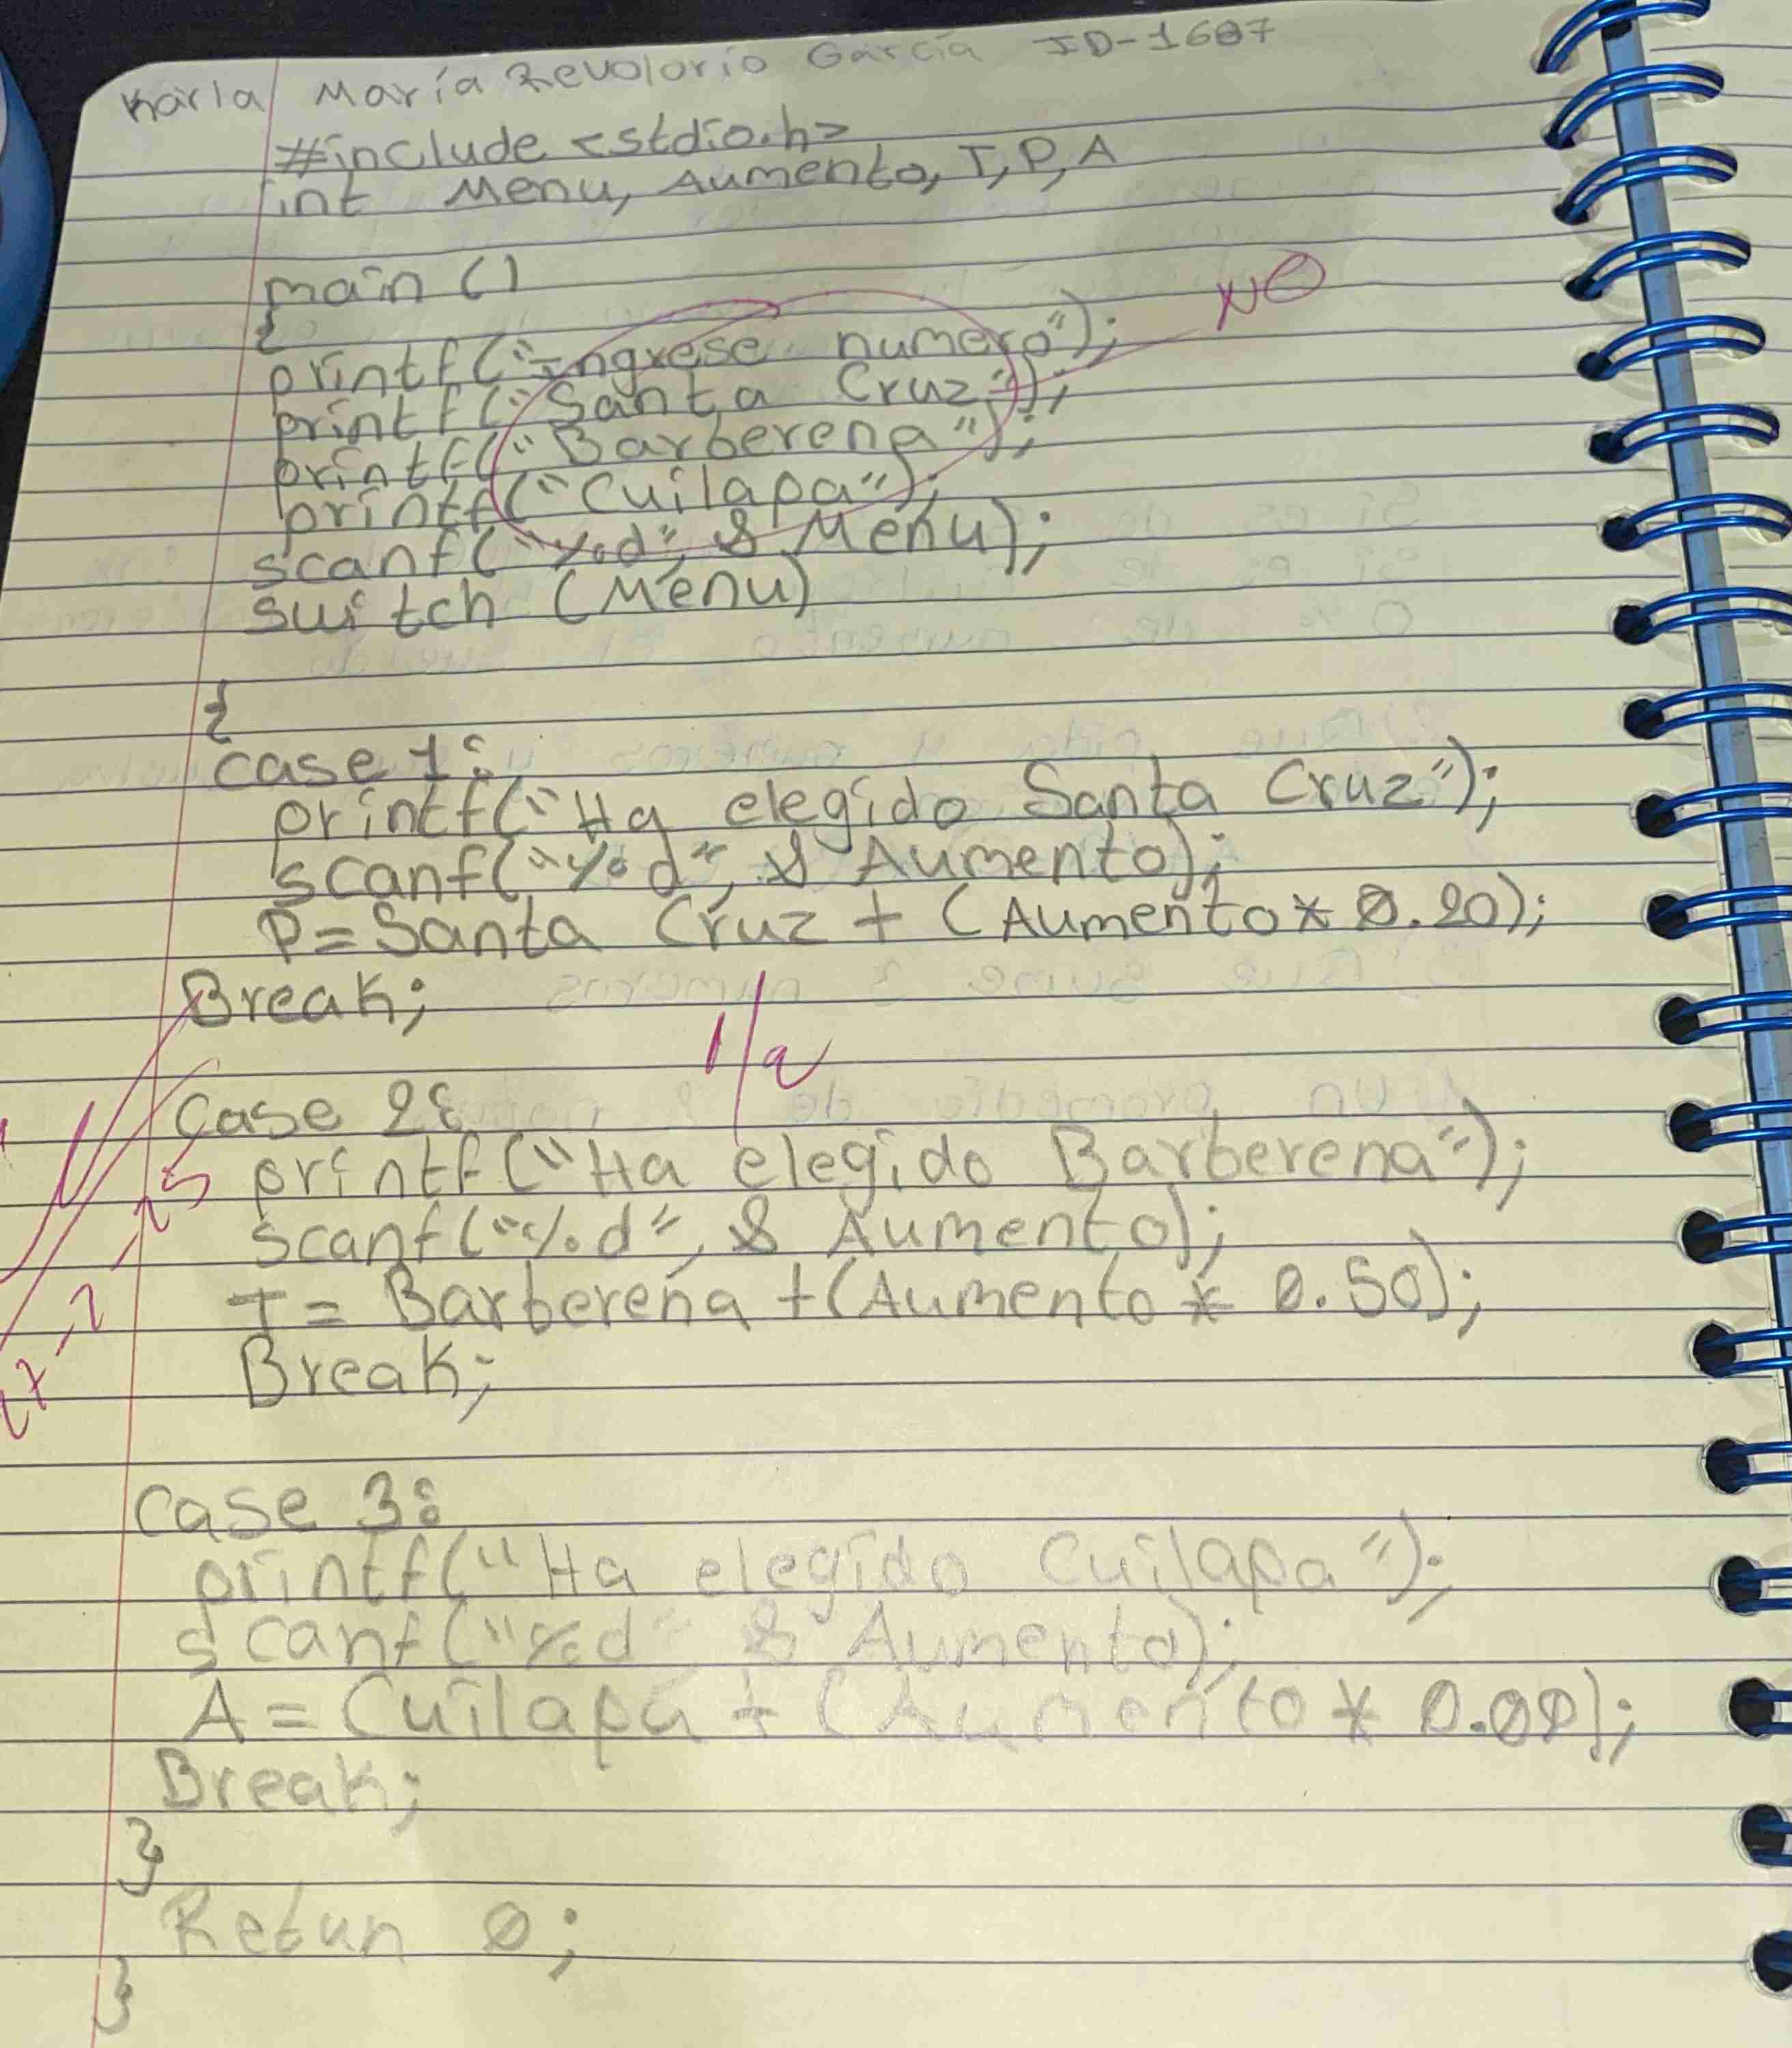 Karla María Revolorio García ID-1607
#include <stdio.h>
int Menu, Aumento, T, P, A
main ()
{
printf("Ingrese numero");
NO
printf("Santa Cruz");
printf("Barberena");
printf("Cuilapa");
scanf("%d", & Menu);
switch (Menu)
{
case 1:
printf("Ha elegido Santa Cruz");
scanf("%d", & Aumento);
P= Santa Cruz + (Aumento * 0.20);
Break;
case 2:
printf("Ha elegido Barberena");
scanf("%d", & Aumento);
T= Barberena + (Aumento * 0.50);
Break;
case 3:
printf("Ha elegido Cuilapa");
scanf("%d", & Aumento);
A= Cuilapa + (Aumento * 0.00);
Break;
}
Retun 0;
}